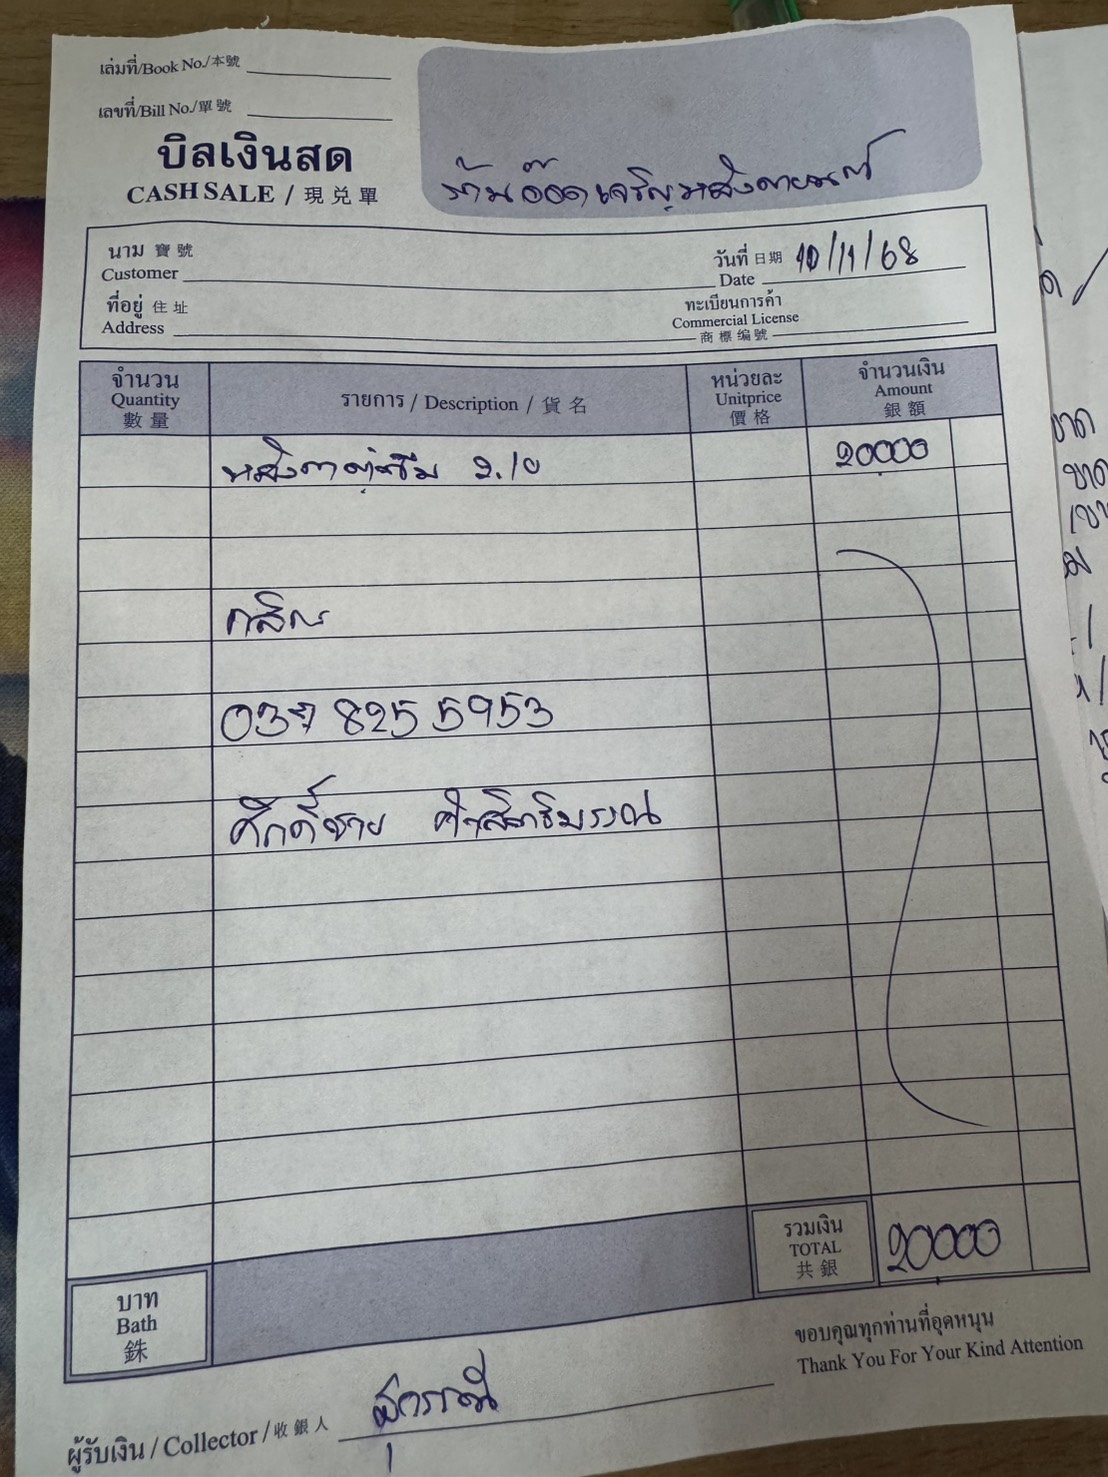 เล่มที่/Book No./本號
เลขที่/Bill No./單 號
บิลเงินสด
CASH SALE / 現 兑 單
ร้านอ๊อดเจริญหลังคายนต์
นาม 寶 號
Customer
วันที่ 日 期 10/11/68
Date
ที่อยู่ 住 址
Address
ทะเบียนการค้า
Commercial License
商 標 编 號
จำนวน
Quantity
數 量
รายการ / Description / 貨 名
หน่วยละ
Unitprice
價 格
จำนวนเงิน
Amount
銀 額
หลังคาตู้ทึบ 2.10 20000
กสิกร
037 825 5953
ศักดิ์ชาย
รวมเงิน
TOTAL
共 銀
20000
บาท
Bath
銖
ขอบคุณทุกท่านที่อุดหนุน
Thank You For Your Kind Attention
ผู้รับเงิน / Collector / 收 銀 人